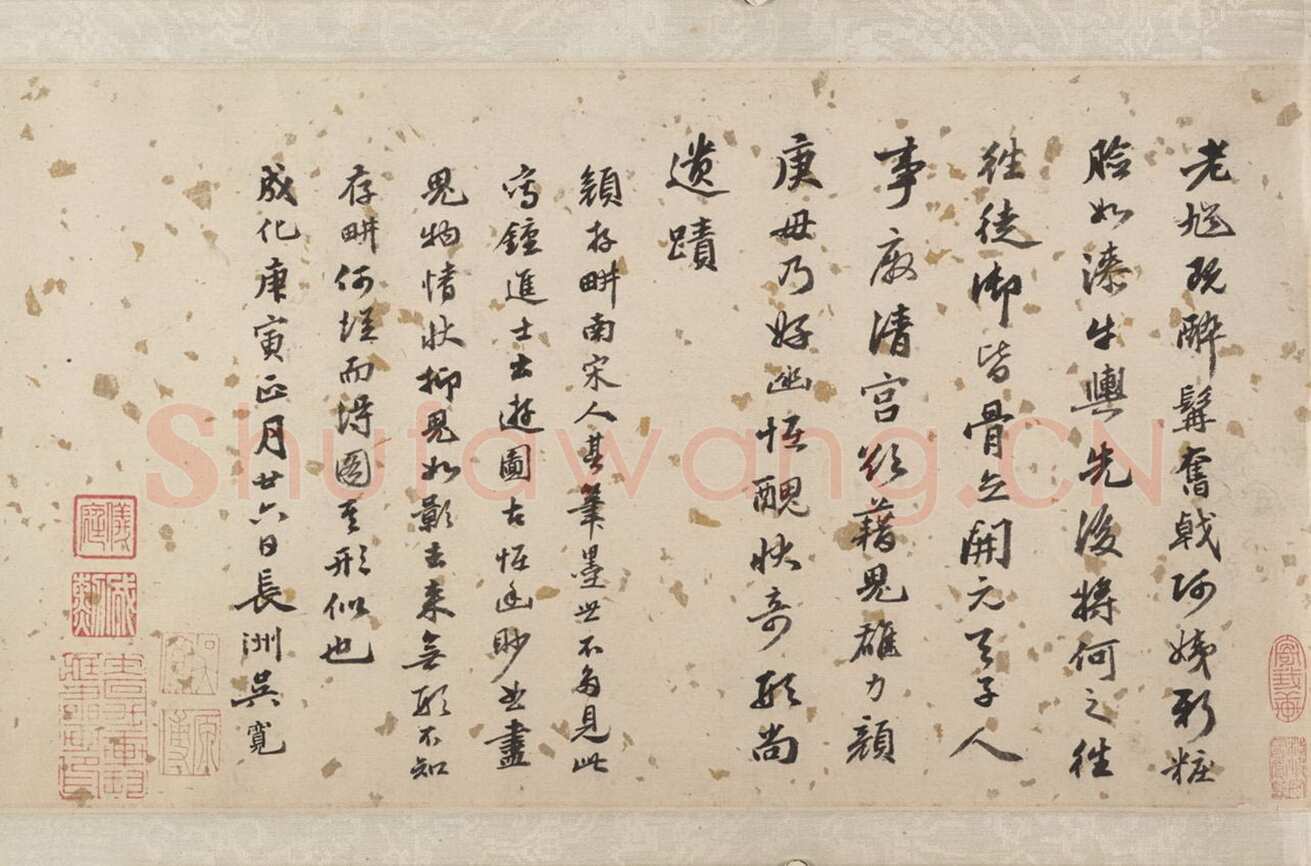 老馗既醉髯奮戟阿姨新粧
臉如漆牛輿先後將何之往
往徒御皆骨立開元天子人
事廢清宮欲藉鬼雄力顏
庚毋乃好幽怪醜狀奇形尚
遺蹟
顏存畊南宋人其筆墨世不多見此
寫鍾進士出遊圖古怪幽眇曲盡
鬼物情狀抑鬼如影去來無形不知
存畊何從而得圖其形似也
成化庚寅正月廿六日長洲吳寬
Shufawang.CN